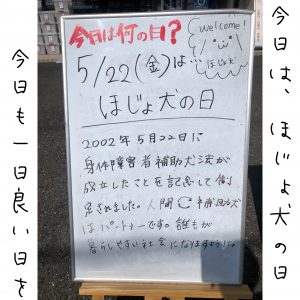 今日は、ほじょ犬の日
今日は何の日?
welcome!
ほじょ犬
5/22(金)は…
ほじょ犬の日
2002年5月22日に
身体障害者補助犬法が
成立したことを記念して制
定されました。人間と補助犬
はパートナーです。誰もが
暮らしやすい社会になりますように。
今日も一日良い日を